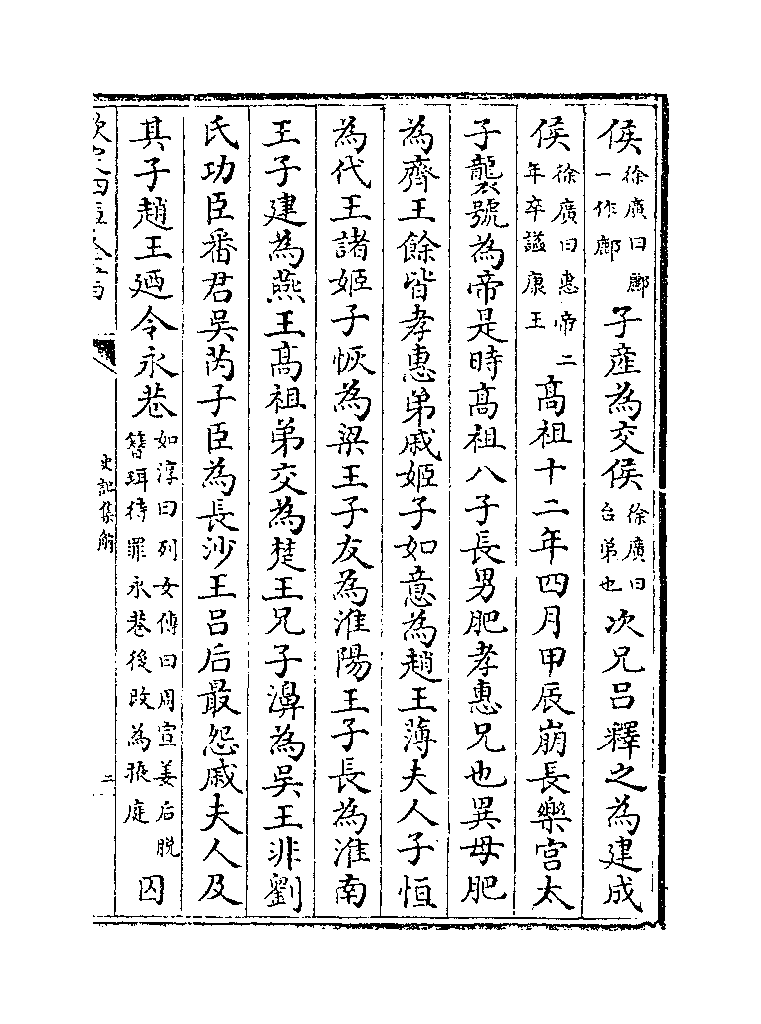 侯徐廣曰酈一作鄜子産為交侯徐廣曰台弟也次兄吕釋之為建成
侯徐廣曰惠帝二年卒諡康王髙祖十二年四月甲辰崩長樂宫太
子襲號為帝是時髙祖八子長男肥孝惠兄也異母肥
為齊王餘皆孝惠弟戚姬子如意為趙王薄夫人子恒
為代王諸姬子恢為梁王子友為淮陽王子長為淮南
王子建為燕王髙祖弟交為楚王兄子濞為吳王非劉
氏功臣番君吳芮子臣為長沙王吕后最怨戚夫人及
其子趙王廼令永巷如淳曰列女傳曰周宣姜后脱簮珥待罪永巷後改為掖庭囚
史記集解
二